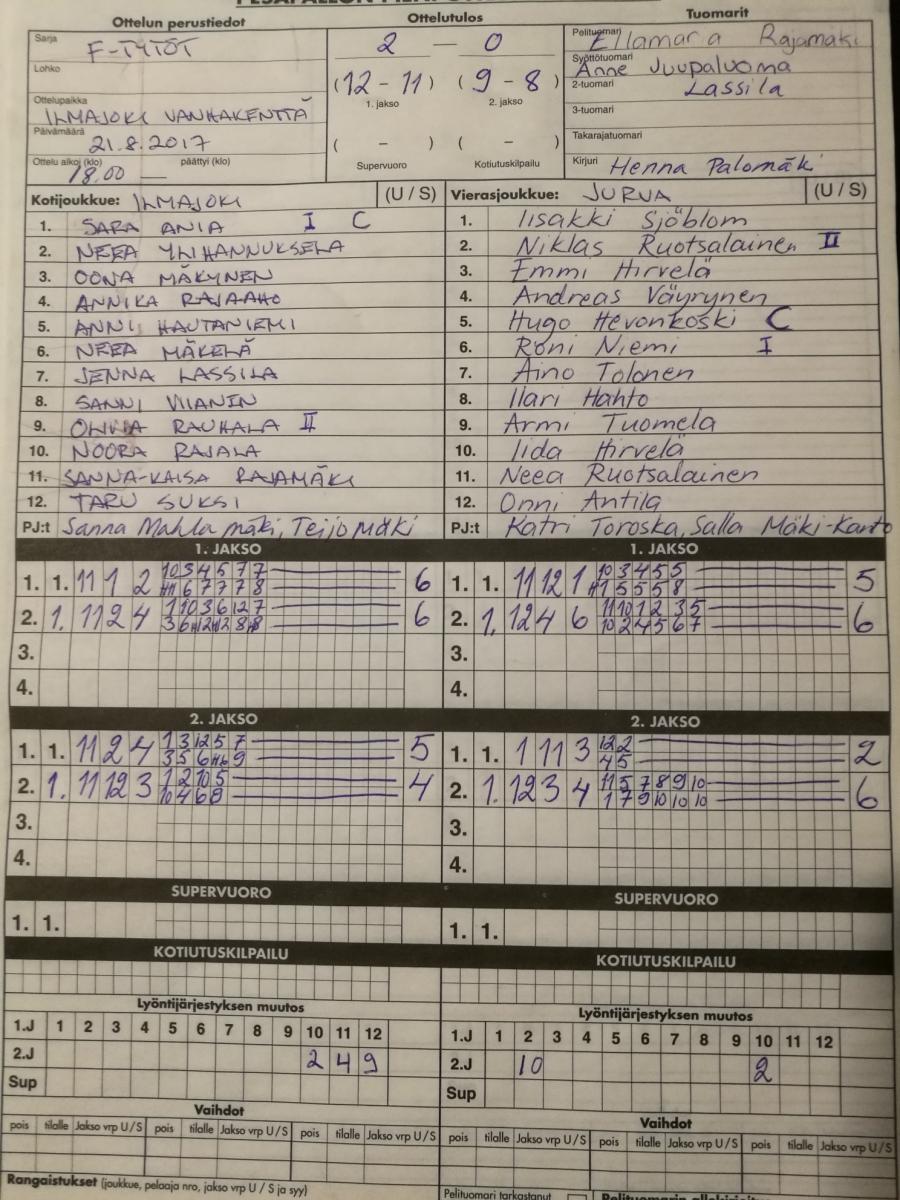 Ottelun perustiedot
Ottelutulos
Tuomarit
Sarja F-TYTÖT
Lohko
Ottelupaikka ILMAJOKI VANHAKENTTÄ
Päivämäärä 21.8.2017
Ottelu alkoi (klo) 18.00 päättyi (klo) —
2 — 0
(12 - 11) (9 - 8)
1. jakso 2. jakso
( - ) ( - )
Supervuoro Kotiutuskilpailu
Pelituomari Ellamaria Rajamäki
Syöttötuomari Anne Juupaluoma
2-tuomari Lassila
3-tuomari
Takarajatuomari
Kirjuri Henna Palomäki
Kotijoukkue: ILMAJOKI (U / S)
1. SARA ANIA I C
2. NEEA YLIHANNUKSELA
3. OONA MÄKYNEN
4. ANNIKA RAJAAHO
5. ANNI HAUTANIEMI
6. NEEA MÄKELÄ
7. JENNA LASSILA
8. SANNI VIANIN
9. OLIVIA RAUHALA II
10. NOORA RAJALA
11. SANNA-KAISA RAJAMÄKI
12. TARU SUKSI
PJ:t Sanna Mahlamäki, Teijo Mäki
Vierasjoukkue: JURVA (U / S)
1. Iisakki Sjöblom
2. Niklas Ruotsalainen II
3. Emmi Hirvelä
4. Andreas Väyrynen
5. Hugo Hevonkoski C
6. Roni Niemi I
7. Aino Tolonen
8. Ilari Hahto
9. Armi Tuomela
10. Iida Hirvelä
11. Neea Ruotsalainen
12. Onni Antila
PJ:t Katri Toroska, Salla Mäki-Kanto
1. JAKSO
1. 1. 11 1 2 10 3 4 5 7 7 6
6 7 7 7 8
2. 1. 11 2 4 1 10 3 6 12 7 6
3.
4.
1. JAKSO
1. 1. 11 12 1 10 3 4 5 5 5
1 5 5 5 8
2. 1. 12 4 6 11 10 1 2 3 5 6
10 2 4 5 6 7
3.
4.
2. JAKSO
1. 1. 11 2 4 1 3 12 5 7 5
2. 1. 11 12 3 1 2 10 5 4
10 4 6 8
3.
4.
2. JAKSO
1. 1. 1 11 3 12 2 2
4 5
2. 1. 12 3 4 11 5 7 8 9 10 6
1 7 9 10 10 10
3.
4.
SUPERVUORO
1. 1.
SUPERVUORO
1. 1.
KOTIUTUSKILPAILU
KOTIUTUSKILPAILU
Lyöntijärjestyksen muutos
1.J 1 2 3 4 5 6 7 8 9 10 11 12
2.J 2 4 9
Sup
Lyöntijärjestyksen muutos
1.J 1 2 3 4 5 6 7 8 9 10 11 12
2.J 10 2
Sup
Vaihdot
pois tilalle Jakso vrp U / S pois tilalle Jakso vrp U / S pois tilalle Jakso vrp U / S
Vaihdot
pois tilalle Jakso vrp U / S pois tilalle Jakso vrp U / S pois tilalle Jakso vrp U / S
Rangaistukset (joukkue, pelaaja nro, jakso vrp U / S ja syy)
Pelituomari tarkastanut